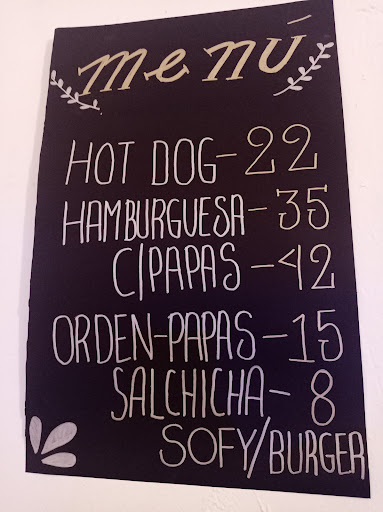 menú
HOT DOG-22
HAMBURGUESA-35
C/PAPAS-42
ORDEN-PAPAS-15
SALCHICHA-8
SOFY/BURGER